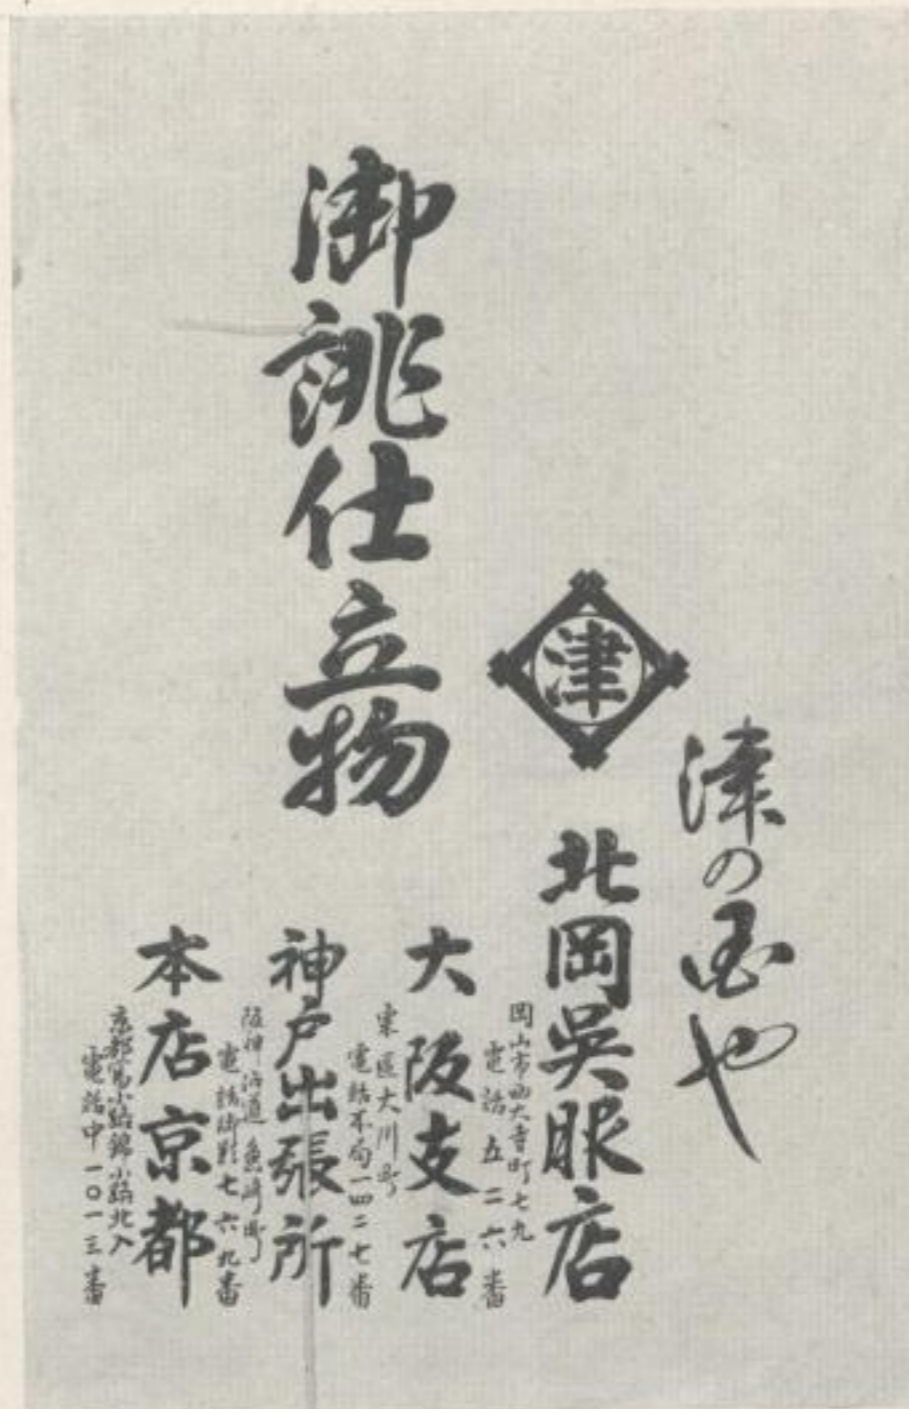 津の国や
津
北岡呉服店
岡山市西大寺町七九
電話五二六番
御誂仕立物
大阪支店
東区大川町
電話本局一四二七番
神戸出張所
阪神沿道魚崎町
電話御影七六九番
本店京都
京都富小路錦小路北入
電話中一〇一三番